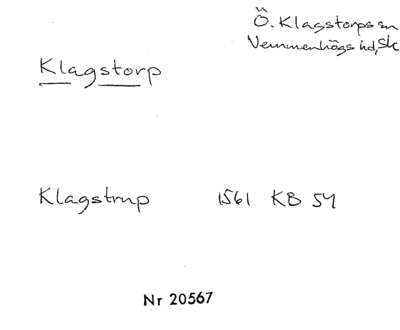 Ö. Klagstorps sn
Vemmenhögs hd, Sk
Klagstorp
Klagstrup 1561 KB 54
Nr 20567